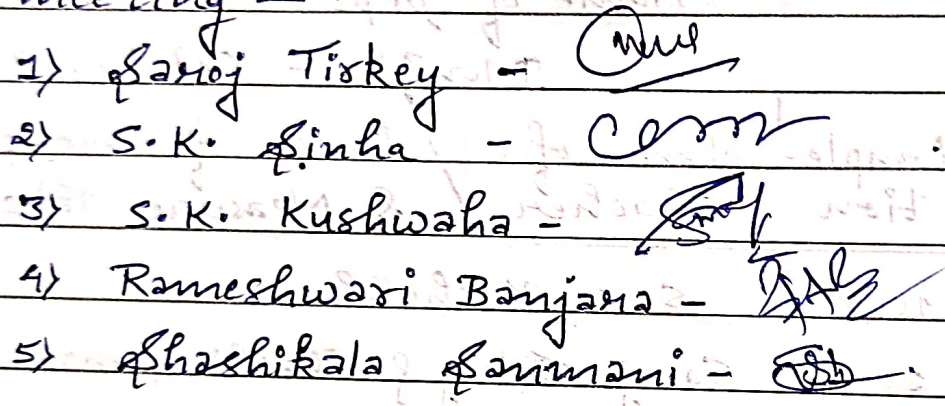 1) Saroj Tirkey -
2) S.K. Sinha -
3) S.K. Kushwaha -
4) Rameshwari Banjara -
5) Shashikala Sanmani -